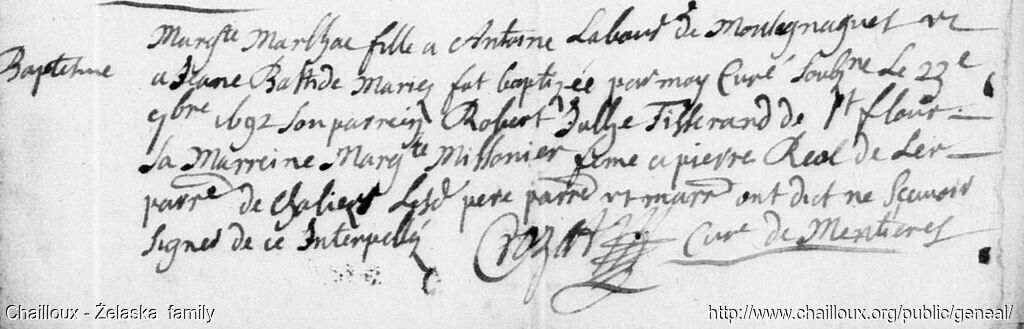 Baptesme
Margte Marlhac fille a Antoine Labour de Montagnaguet et
a Jeane Bastide Mariez fut baptizée par moy Curé soubzne Le 23e
9bre 1692 son parrein Robert Tisserand de St flour
sa Marreine Margte Missonier feme a pierre Real de Ler
parre de Chaliers Lesd pere parre et marre ont dict ne scavoir
signer de ce Interpellez Crozat Curé de Mentieres
Chailloux - Żelaska family
http://www.chailloux.org/public/geneal/